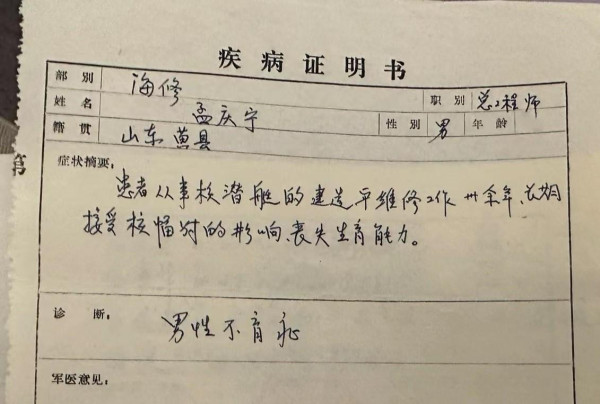 疾病证明书
部别 海修 职别 总工程师
姓名 孟庆宁 性别 男 年龄
籍贯 山东黄县
第
症状摘要:
患者从事核潜艇的建造平维修工作卅余年、长期
接受核幅对的影响、丧失生育能力。
诊断: 男性不育症
军医意见: